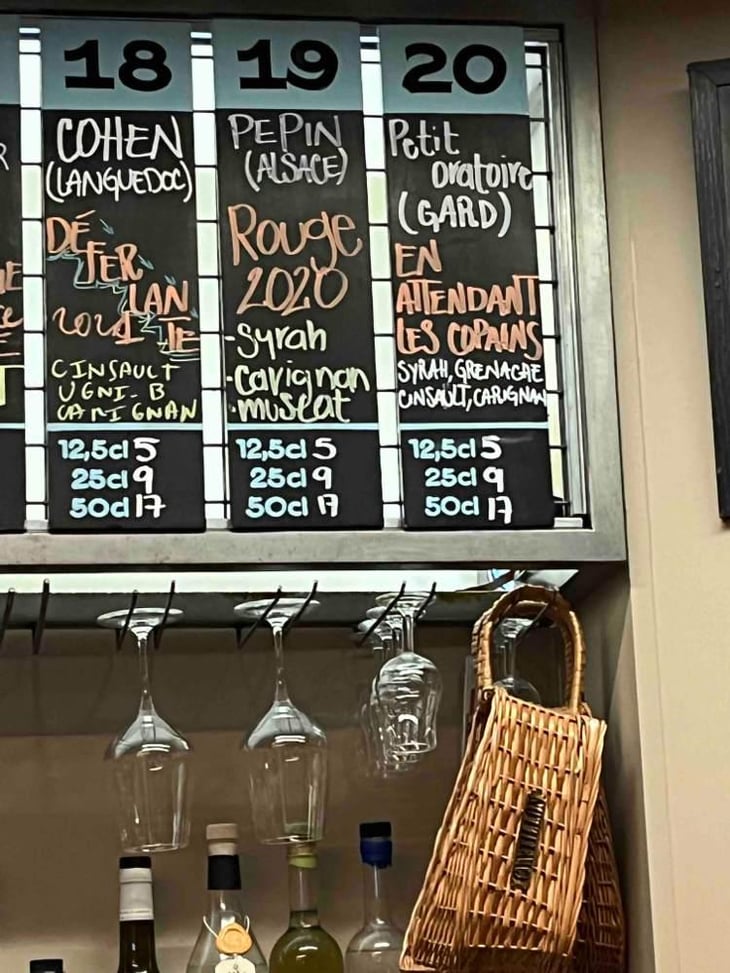 18
COHEN
(LANGUEDOC)
DÉ
FER
LAN
TE
2021
CINSAULT
UGNI-B
CARIGNAN
12,5cl 5
25cl 9
50cl 17
19
PEPIN
(ALSACE)
Rouge
2020
-Syrah
-Carignan
-muscat
12,5cl 5
25cl 9
50cl 17
20
Petit
oratoire
(GARD)
EN
ATTENDANT
LES COPAINS
SYRAH, GRENACHE
CINSAULT, CARIGNAN
12,5cl 5
25cl 9
50cl 17